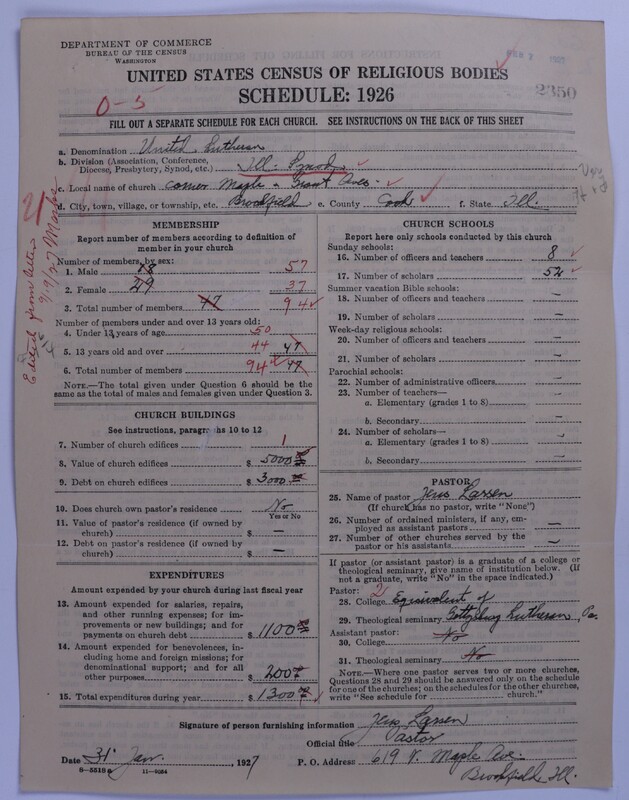 DEPARTMENT OF COMMERCE
BUREAU OF THE CENSUS
WASHINGTON
UNITED STATES CENSUS OF RELIGIOUS BODIES
SCHEDULE: 1926
0-5
2350
FILL OUT A SEPARATE SCHEDULE FOR EACH CHURCH. SEE INSTRUCTIONS ON THE BACK OF THIS SHEET
a. Denomination United Lutheran
b. Division (Association, Conference,
Diocese, Presbytery, Synod, etc.) Ill. Synod
c. Local name of church corner Maple & Grant Aves.
d. City, town, village, or township, etc. Brookfield e. County Cook f. State Ill.
Edited from letter 9/9/27
MEMBERSHIP
Report number of members according to definition of
member in your church
Number of members by sex:
1. Male 18 57
2. Female 29 37
3. Total number of members 47 94
Number of members under and over 13 years old:
4. Under 13 years of age 50
5. 13 years old and over 44 47
6. Total number of members 94 47
NOTE.—The total given under Question 6 should be the
same as the total of males and females given under Question 3.
CHURCH BUILDINGS
See instructions, paragraphs 10 to 12
7. Number of church edifices 1
8. Value of church edifices $ 5000
9. Debt on church edifices $ 3000
10. Does church own pastor's residence? No
Yes or No
11. Value of pastor's residence (if owned by
church) $ —
12. Debt on pastor's residence (if owned by
church) $ —
EXPENDITURES
Amount expended by your church during last fiscal year
13. Amount expended for salaries, repairs,
and other running expenses; for im-
provements or new buildings; and for
payments on church debt $ 1100
14. Amount expended for benevolences, in-
cluding home and foreign missions; for
denominational support; and for all
other purposes $ 200
15. Total expenditures during year $ 1300
CHURCH SCHOOLS
Report here only schools conducted by this church
Sunday schools:
16. Number of officers and teachers 8
17. Number of scholars 52
Summer vacation Bible schools:
18. Number of officers and teachers —
19. Number of scholars —
Week-day religious schools:
20. Number of officers and teachers —
21. Number of scholars —
Parochial schools:
22. Number of administrative officers —
23. Number of teachers—
a. Elementary (grades 1 to 8) —
b. Secondary —
24. Number of scholars—
a. Elementary (grades 1 to 8) —
b. Secondary —
PASTOR
25. Name of pastor Jens Larsen
(If church has no pastor, write "None")
26. Number of ordained ministers, if any, em-
ployed as assistant pastors —
27. Number of other churches served by the
pastor or his assistants —
If pastor (or assistant pastor) is a graduate of a college or
theological seminary, give name of institution below. (If
not a graduate, write "No" in the space indicated.)
Pastor: 2
28. College Equivalent of
29. Theological seminary Gettysburg Lutheran, Pa.
Assistant pastor:
30. College No
31. Theological seminary No
NOTE.—Where one pastor serves two or more churches,
Questions 28 and 29 should be answered only on the schedule
for one of the churches; on the schedules for the other churches,
write "See schedule for church."
Signature of person furnishing information Jens Larsen
Official title Pastor
Date 31 Jan, 1927 P. O. Address 619 N. Maple Ave.
8—5518a 11—9084 Brookfield, Ill.